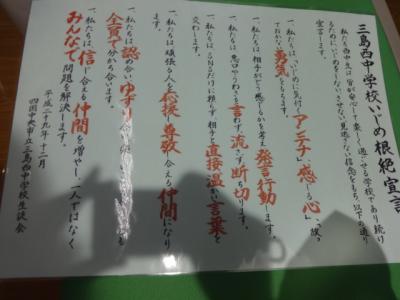 三島西中学校いじめ根絶宣言
私たち西中生は、皆が安心して楽しく過ごせる学校であり続け
るために、いじめをしない、させない、見逃さない信念をもち、以下の通り
宣言します。
一、私たちは、いじめに気付く「アンテナ」、「感じる心」、「救う
勇気」をもちます。
一、私たちは、相手がどう感じるかを考え、発言・行動します。
一、私たちは、悪口やうわさを言わず、流さず、断ち切ります。
一、私たちは、SNSだけに頼らず、相手と直接、温かい言葉を
交わします。
一、私たちは、頑張る人を応援し、尊敬し合える仲間になり
一、私たちは、認め合い、ゆずり合い
全員で分かち合います。
一、私たちは、信じ合える仲間を増やし、一人ではなく
みんなで問題を解決します。
平成二十九年十二月
四国中央市立三島西中学校生徒会